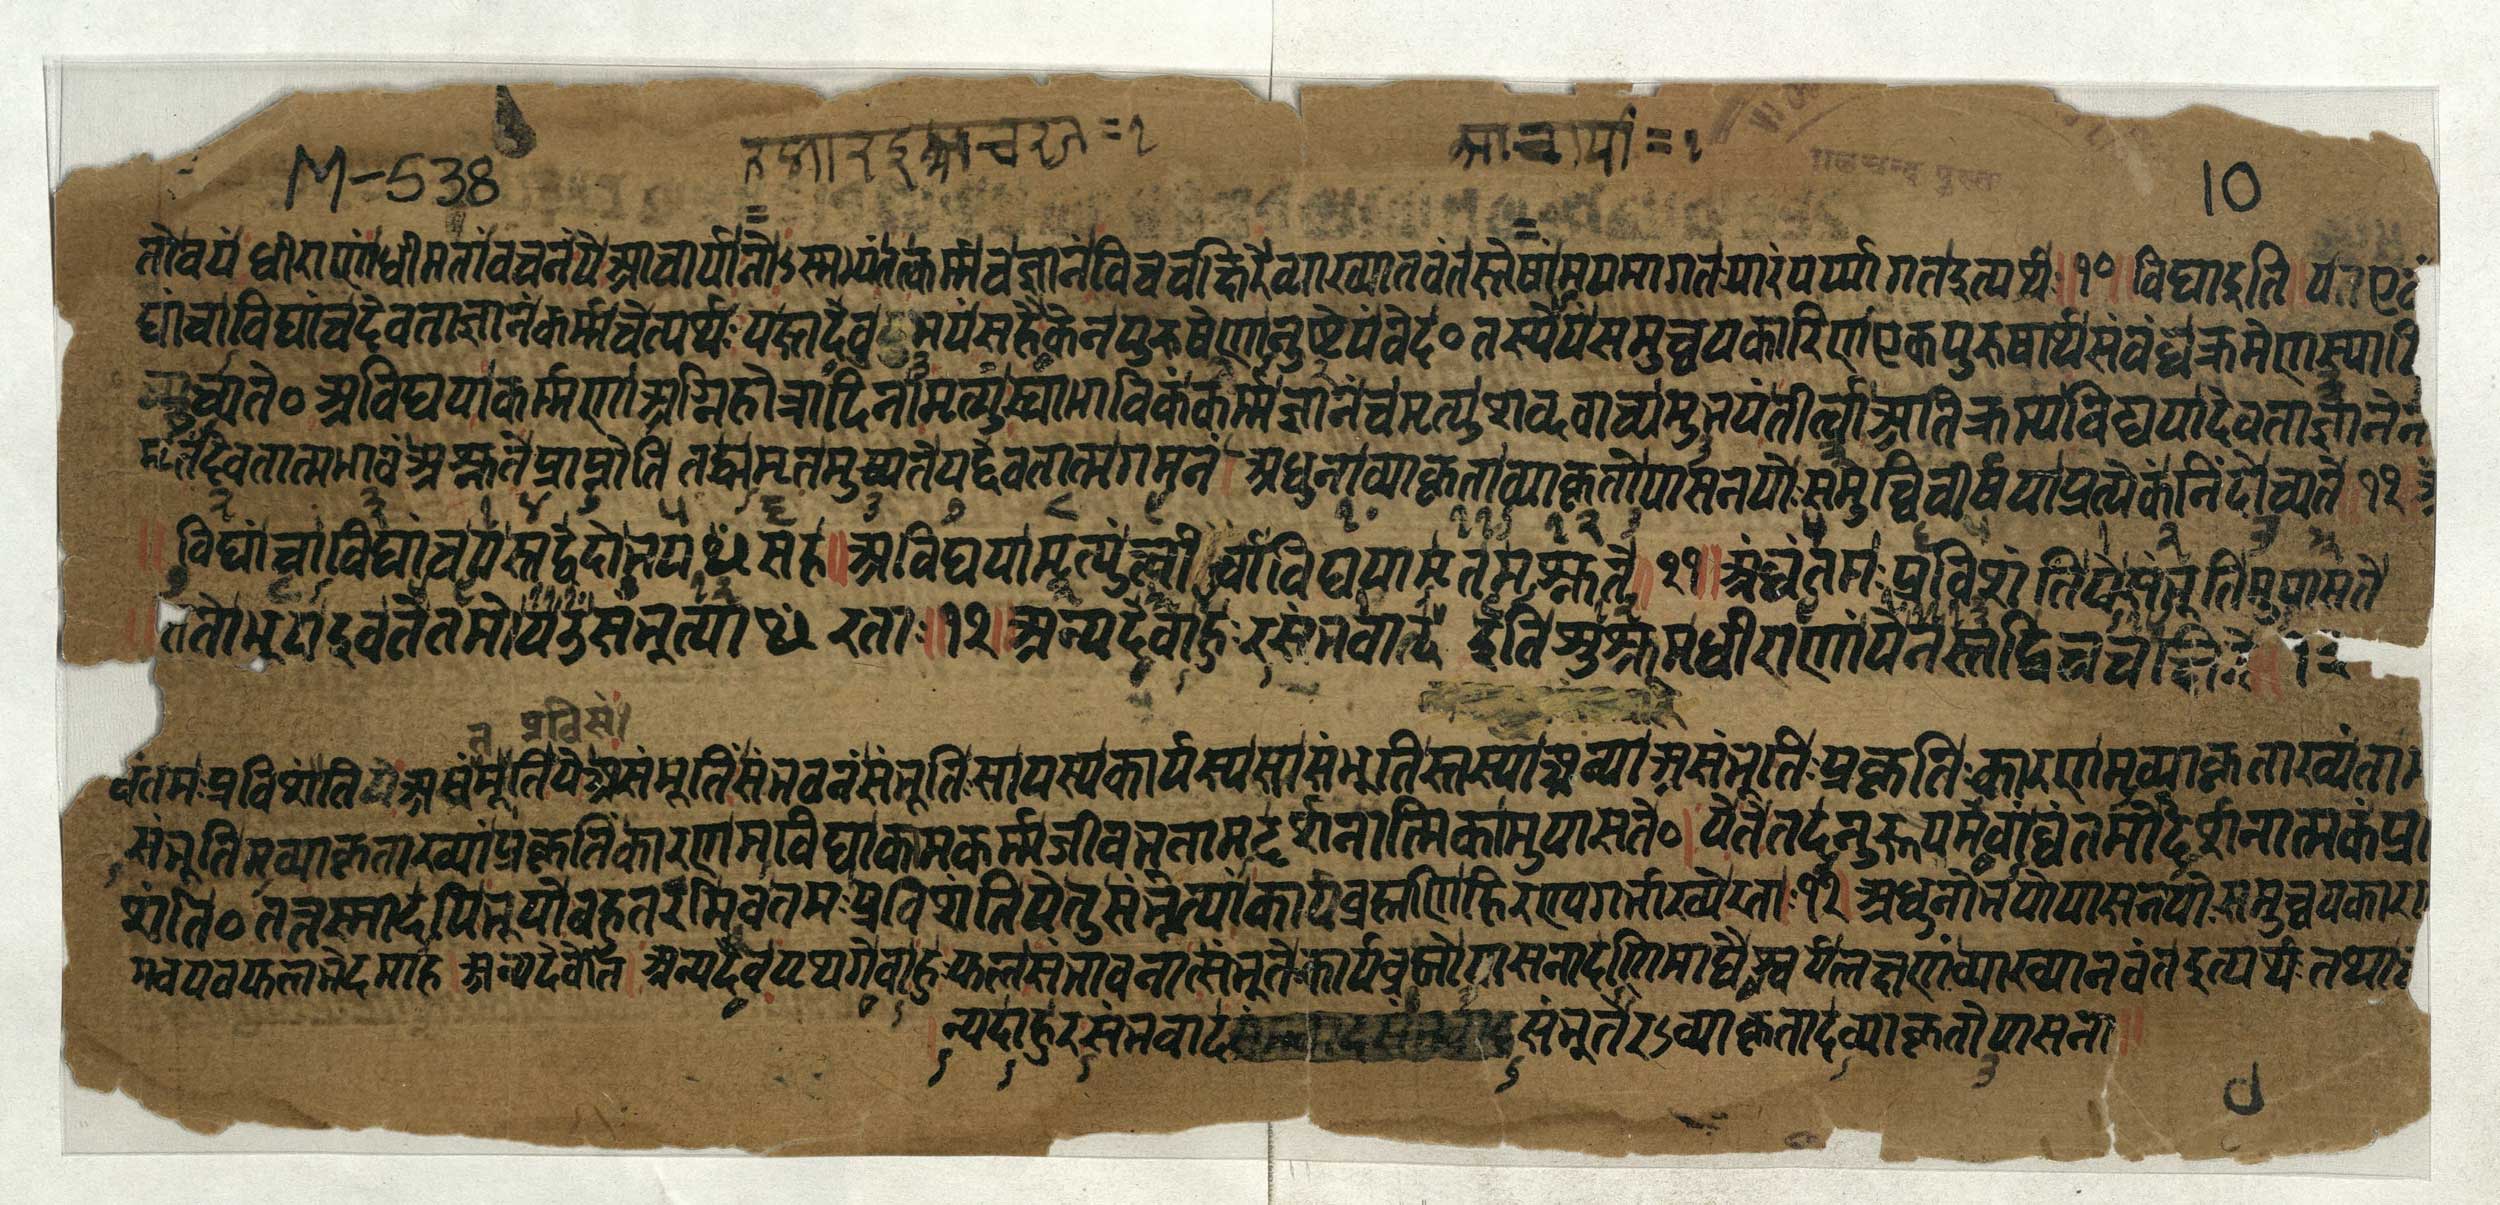 M-538
आचार्या = १
10
तोवयं धीराणां धीमतां वचनं ये आचार्या नो ऽस्मभ्यं तत्कर्म्म च ज्ञानं विचचक्षिरे व्याख्यातवंतस्तेषामयमागतः पारंपर्य्यागत इत्यर्थः ॥ १० ॥ विद्यां इति यत एवं
द्यां चाविद्यां च देवताज्ञानं कर्म्म चेत्यर्थः यस्तदेव मयं सहैकेन पुरुषेणानुष्टेयं वेद० तस्यैवं समुच्चयकारिण एकपुरुषार्थसंबंधः क्रमेण स्यादि
च्युच्यते० अविद्यया कर्म्मणा अग्निहोत्रादिना मृत्युं स्वाभाविकं कर्म्म ज्ञानं च मृत्युशब्दवाच्यमुभयं तीर्त्वा अतिक्रम्य विद्यया देवताज्ञानेन
मृतं देवतात्मभावं अश्नुते प्राप्नोति तद्ध्यमृतमुच्यते यद्देवतात्मगमनं । अधुना व्याकृताव्याकृतोपासनयोः समुच्चिचीर्षया प्रत्येकं निंदोच्यते ११
॥ विद्यां चाविद्यां च यस्तद्वेदोभयꣳ सह ॥ अविद्यया मृत्युं तीर्त्वा विद्ययामृतमश्नुते ॥ ११ ॥ अंधंतमः प्रविशंति येसंभूतिमुपासते
॥ ततो भूय इव ते तमो य उ संभूत्याꣳ रताः ॥ १२ ॥ अन्यदेवाहुः रसंभवात् इति शुश्रुम धीराणां ये नस्तद्विचचक्षिरे ॥ १३
न प्रविसं।
धंतमः प्रविशंति ये असंभूतिं ये असंभूतिं संभवनं संभूतिः सा यस्य कार्यस्य सा संभूतिस्तस्या अन्या असंभूतिः प्रकृतिः कारणमव्याकृताख्यं ताम
संभूतिमव्याकृताख्यां प्रकृतिं कारणमविद्याकामकर्म्मजीवभूतामदर्शनात्मिकामुपासते० । ये ते तदनुरूपमेवांधंतमो दर्शनात्मकं प्र
शंति० ततस्मादपि भूयो बहुतरमिव तमः प्रविशंति ये तु संभूत्यां कार्यब्रह्मणि हिरण्यगर्भाख्ये रताः १२ अधुनोभयोपासनयोः समुच्चयकार
मवयवफलभेदमाह । अन्यदेवेति । अन्यदेव पृथगेवाहुः फलं संभावनात्संभूतेः कार्यब्रह्मोपासनादणिमाद्यैश्वर्यलक्षणं व्याख्यानवंत इत्यर्थः तथा
न्यदाहुरसंभवाद संभूतेर ऽव्याकृतादव्याकृतोपासना ॥